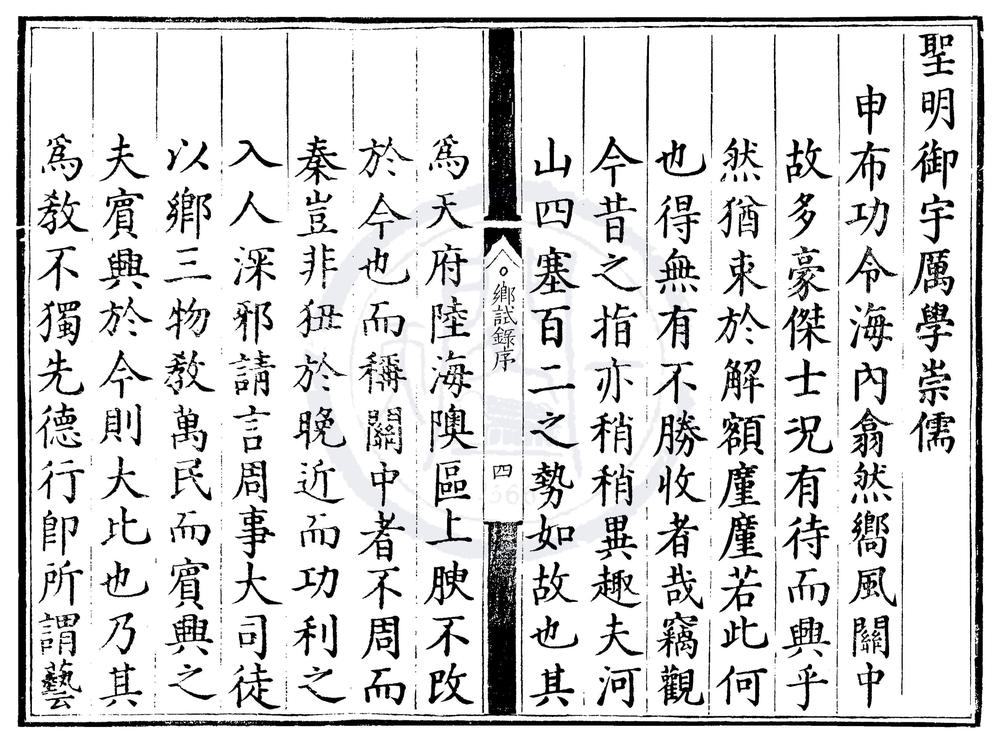 聖明御宇厲學崇儒
申布功令海內翕然嚮風關中
故多豪傑士況有待而興乎
然猶束於解額廑廑若此何
也得無有不勝收者哉竊觀
今昔之指亦稍稍異趣夫河
山四塞百二之勢如故也其
鄉試錄序
四
為天府陸海隩區上腴不改
於今也而稱關中者不周而
秦豈非狃於晚近而功利之
入人深邪請言周事大司徒
以鄉三物教萬民而賓興之
夫賓興於今則大比也乃其
為教不獨先德行卽所謂藝